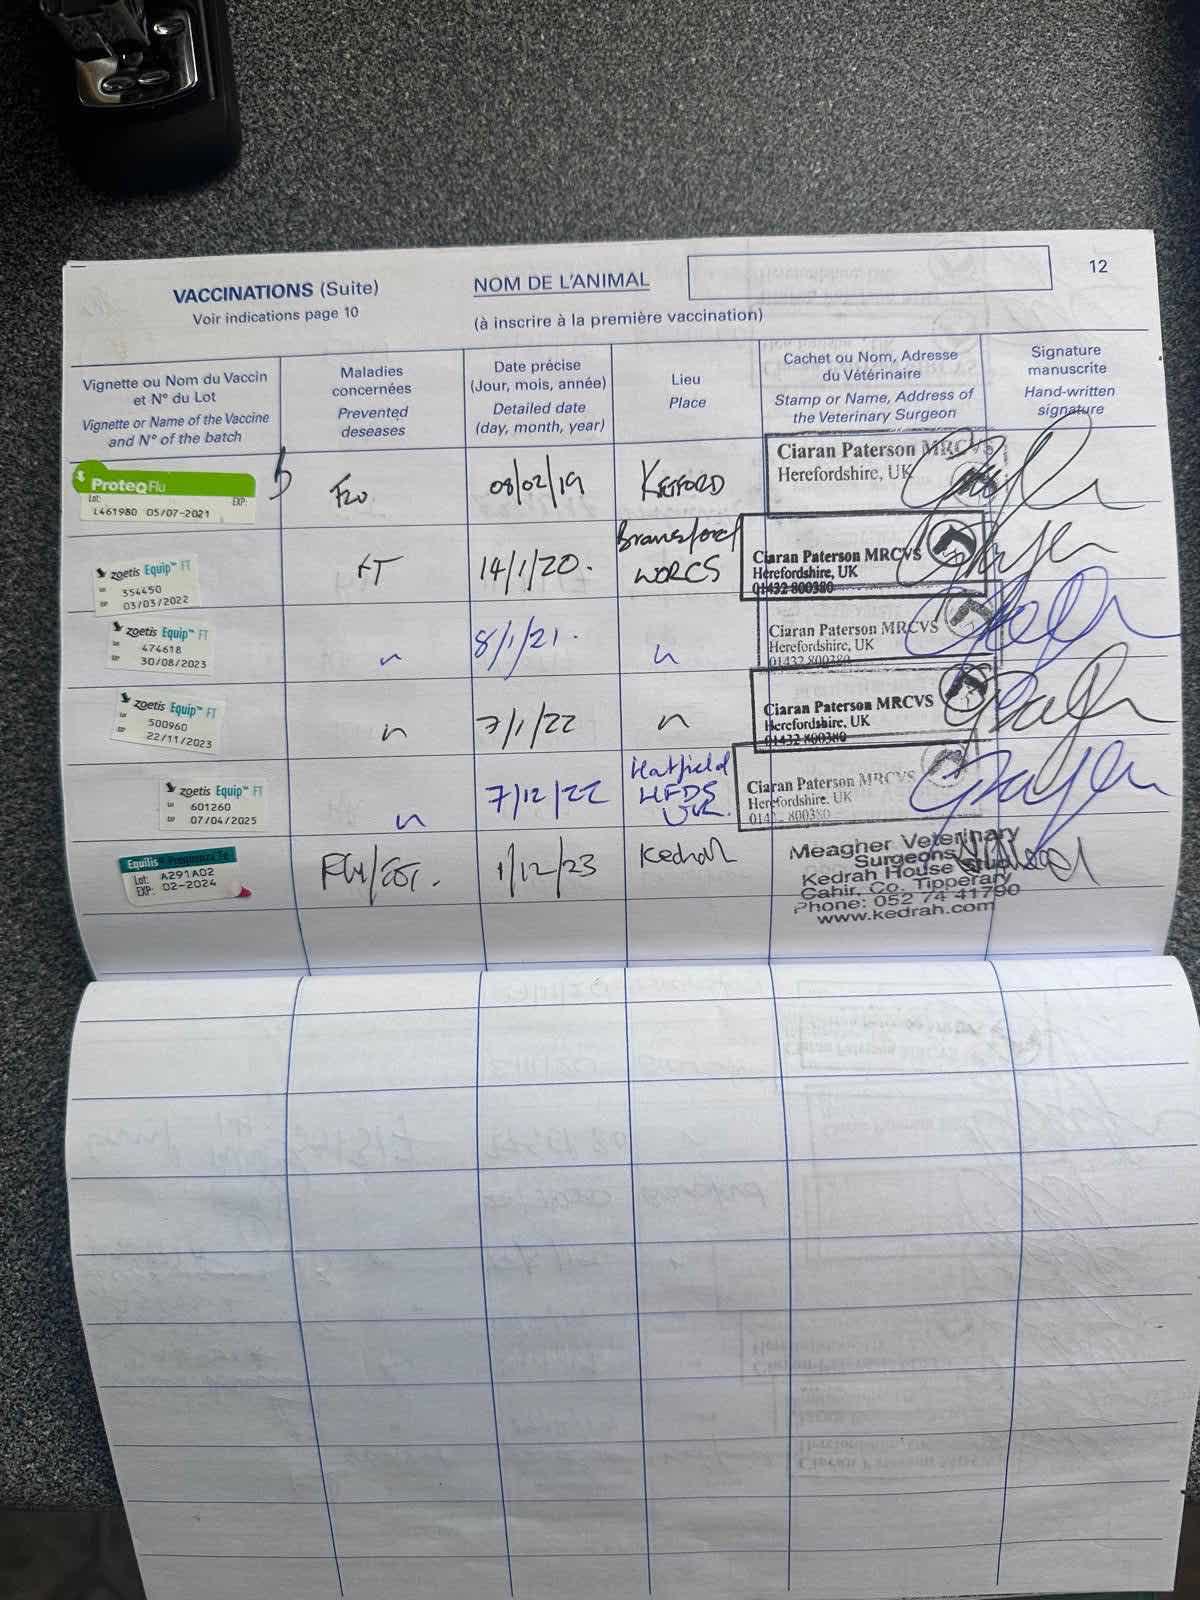 VACCINATIONS (Suite)
Voir indications page 10
NOM DE L'ANIMAL
(à inscrire à la première vaccination)
12
Vignette ou Nom du Vaccin
et N° du Lot
Vignette or Name of the Vaccine
and N° of the batch
Maladies
concernées
Prevented
deseases
Date précise
(Jour, mois, année)
Detailed date
(day, month, year)
Lieu
Place
Cachet ou Nom, Adresse
du Vétérinaire
Stamp or Name, Address of
the Veterinary Surgeon
Signature
manuscrite
Hand-written
signature
ProteqFlu
Lot: EXP:
L461980 05/07-2021
FLU
08/02/19
Ciaran Paterson MRCVS
Herefordshire, UK
zoetis Equip™ FT
354450
03/03/2022
FT
14/1/20.
Bransford
WORCS
Ciaran Paterson MRCVS
Herefordshire, UK
01432 800380
zoetis Equip™ FT
474618
30/08/2023
8/1/21.
Ciaran Paterson MRCVS
Herefordshire, UK
01432 800380
zoetis Equip™ FT
500960
22/11/2023
7/1/22
Ciaran Paterson MRCVS
Herefordshire, UK
01432 800380
zoetis Equip™ FT
601260
07/04/2025
7/12/22
Hatfield
HFDS
UK.
Ciaran Paterson MRCVS
Herefordshire, UK
800380
Equilis Prequenza Te
Lot: A291A02
EXP: 02-2024
1/12/23
Kedrah
Meagher Veterinary
Surgeons
Kedrah House Stud
Cahir, Co. Tipperary
Phone: 052 74 41790
www.kedrah.com